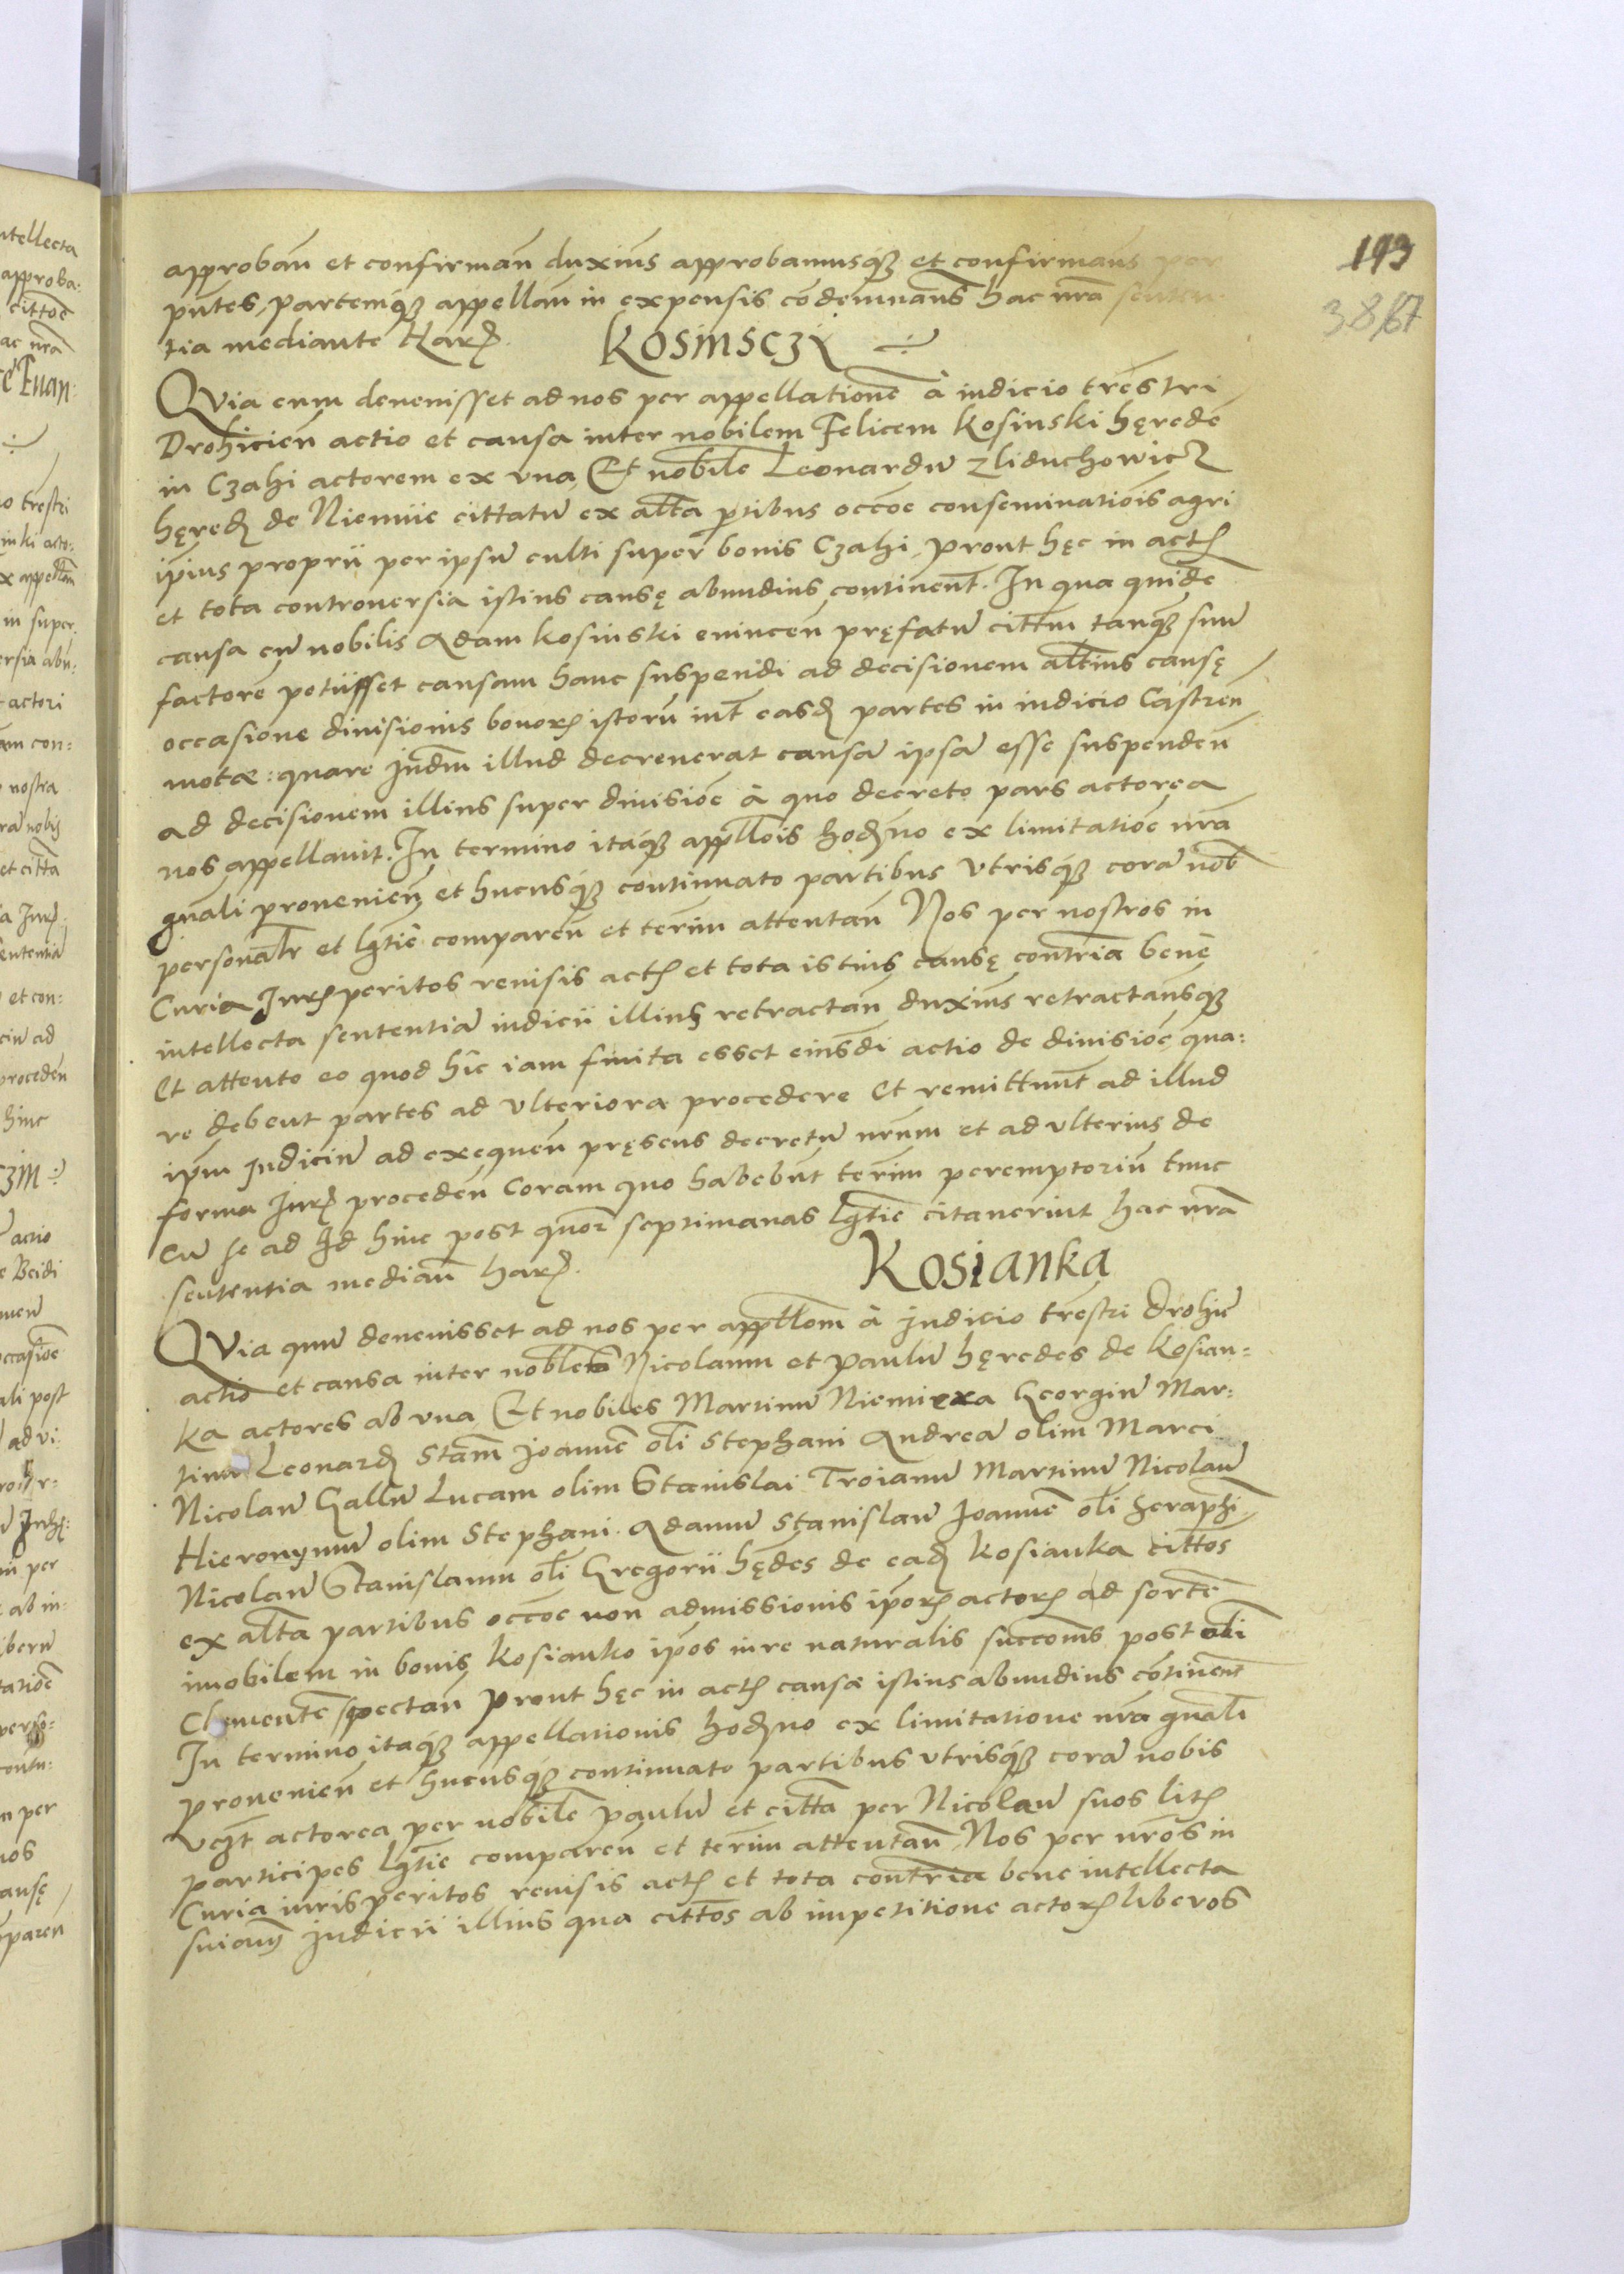 193
3867
approbañ et confirmañ duxim̃s approbamusq́ꝫ et confirmam̃s per
pñtes, partemq́ꝫ appellañ in expensis cõdemnam̃s hac nrã senten
tia mediante Harꝝ. Kosinsczi
Quia cum deuenisset ad nos per appellationẽ à iudicio trẽstri
Drohicień actio et causa inter nobilem Felicem Kosinski hęredẽ
in Czahi actorem ex vna, Et nobilẽ Leonardũ Zliduchowicz
hęredꝭ de Niemiie cittatũ ex altã ptibus occõe conseminatiõis agri
ipĩus proprii per ipsũ culti super bonis Czahi, prout hęc in actꝭ
et tota controuersia istius causę abundius continent̃. In qua quidẽ
causa cũ nobilis Adam Kosinski euinceñ pręfatũ cittm̃ tanq́ꝫ suũ
factorẽ petiisset causam hanc suspendi ad decisionem altĩus causę
occasione diuisionis bonorꝝ istorũ int̃ easdꝭ partes in iudicio Castreñ
motæ: quare Judm̃ illud decreuerat causã ipsã esse suspendeñ
ad decisionem illius super diuisiõe à quo decreto pars actorea
nos appellauit. In termino itaq́ꝫ appllõis hodꝭno ex limitatiõe nrã
gnãli prouenieñ et hucusq́ꝫ continuato partibus vtrisq́ꝫ corã nob̃
personalr̃ et lgt̃ie compareñ et term̃ attentañ Nos per nostros in
Curia Jurꝭ peritos reuisis actꝭ et tota istius causę contrr̃ia benè
intellecta sententiã iudicii illius retractañ duxim̃s retractam̃sq́ꝫ
Et attento eo quod hĩc iam finita esset eiusdĩ actio de diuisiõe, qua:
re debent partes ad vlteriora procedere Et remittunt̃ ad illud
ipm̃ Judiciũ ad exequeñ pręsens decretũ nrũm et ad vlterius de
forma Jurꝭ procedeñ Coram quo habebũt term̃ peremptoriũ tunc
Cũ se ad Id hinc post quor̃ septimanas lgt̃ie citauerint hac nrã
sententia mediañ harꝝ. Kosianka
Quia quũ deuenisset ad nos per appllõm à Judicio trẽstri Drohic̃
actio et causa inter nobles Nicolaum et Paulũ hęredes de Kosian:
ka actores ab vna, Et nobiles Martinũ Niemiexa Georgiũ Mar:
tinũ Leonardꝭ Stam̃ Joannẽ olĩ Stephani Andreã olim Marci
Nicolaũ Gallũ Lucam olim Stanislai Troianũ Martinũ Nicolaũ
Hieronymũ olim Stephani. Adamũ Stanislaũ Joannẽ olĩ Seraphi.
Nicolaũ Stanislaum olĩ Gregorii hędes de eadꝭ Kosianka cittõs
ex altã partibus occõe non admissionis ipõrꝝ actorꝝ ad sortẽ
imobilem in bonis Kosianko ipõs iure naturalis succom̃s post olĩ
Clementẽ spectañ Prout hęc in actꝭ causæ istius abundius cõtinent̃
In termino itaq́ꝫ appellationis hodꝭno ex limitatione nrã gnãli
prouenieñ et hucusq́ꝫ continuato partibus vtrisq́ꝫ corã nobis
vcꝫt actorea per nobilẽ Paulũ et cittã per Nicolaũ suos litꝭ
participes lgt̃ie compareñ et term̃ attentañ, Nos per nrõs in
Curia iuris peritos reuisis actꝭ et tota contrr̃ia bene intellecta
sniam̃ Judicii illius qua cittõs ab impetitione actorꝝ liberos